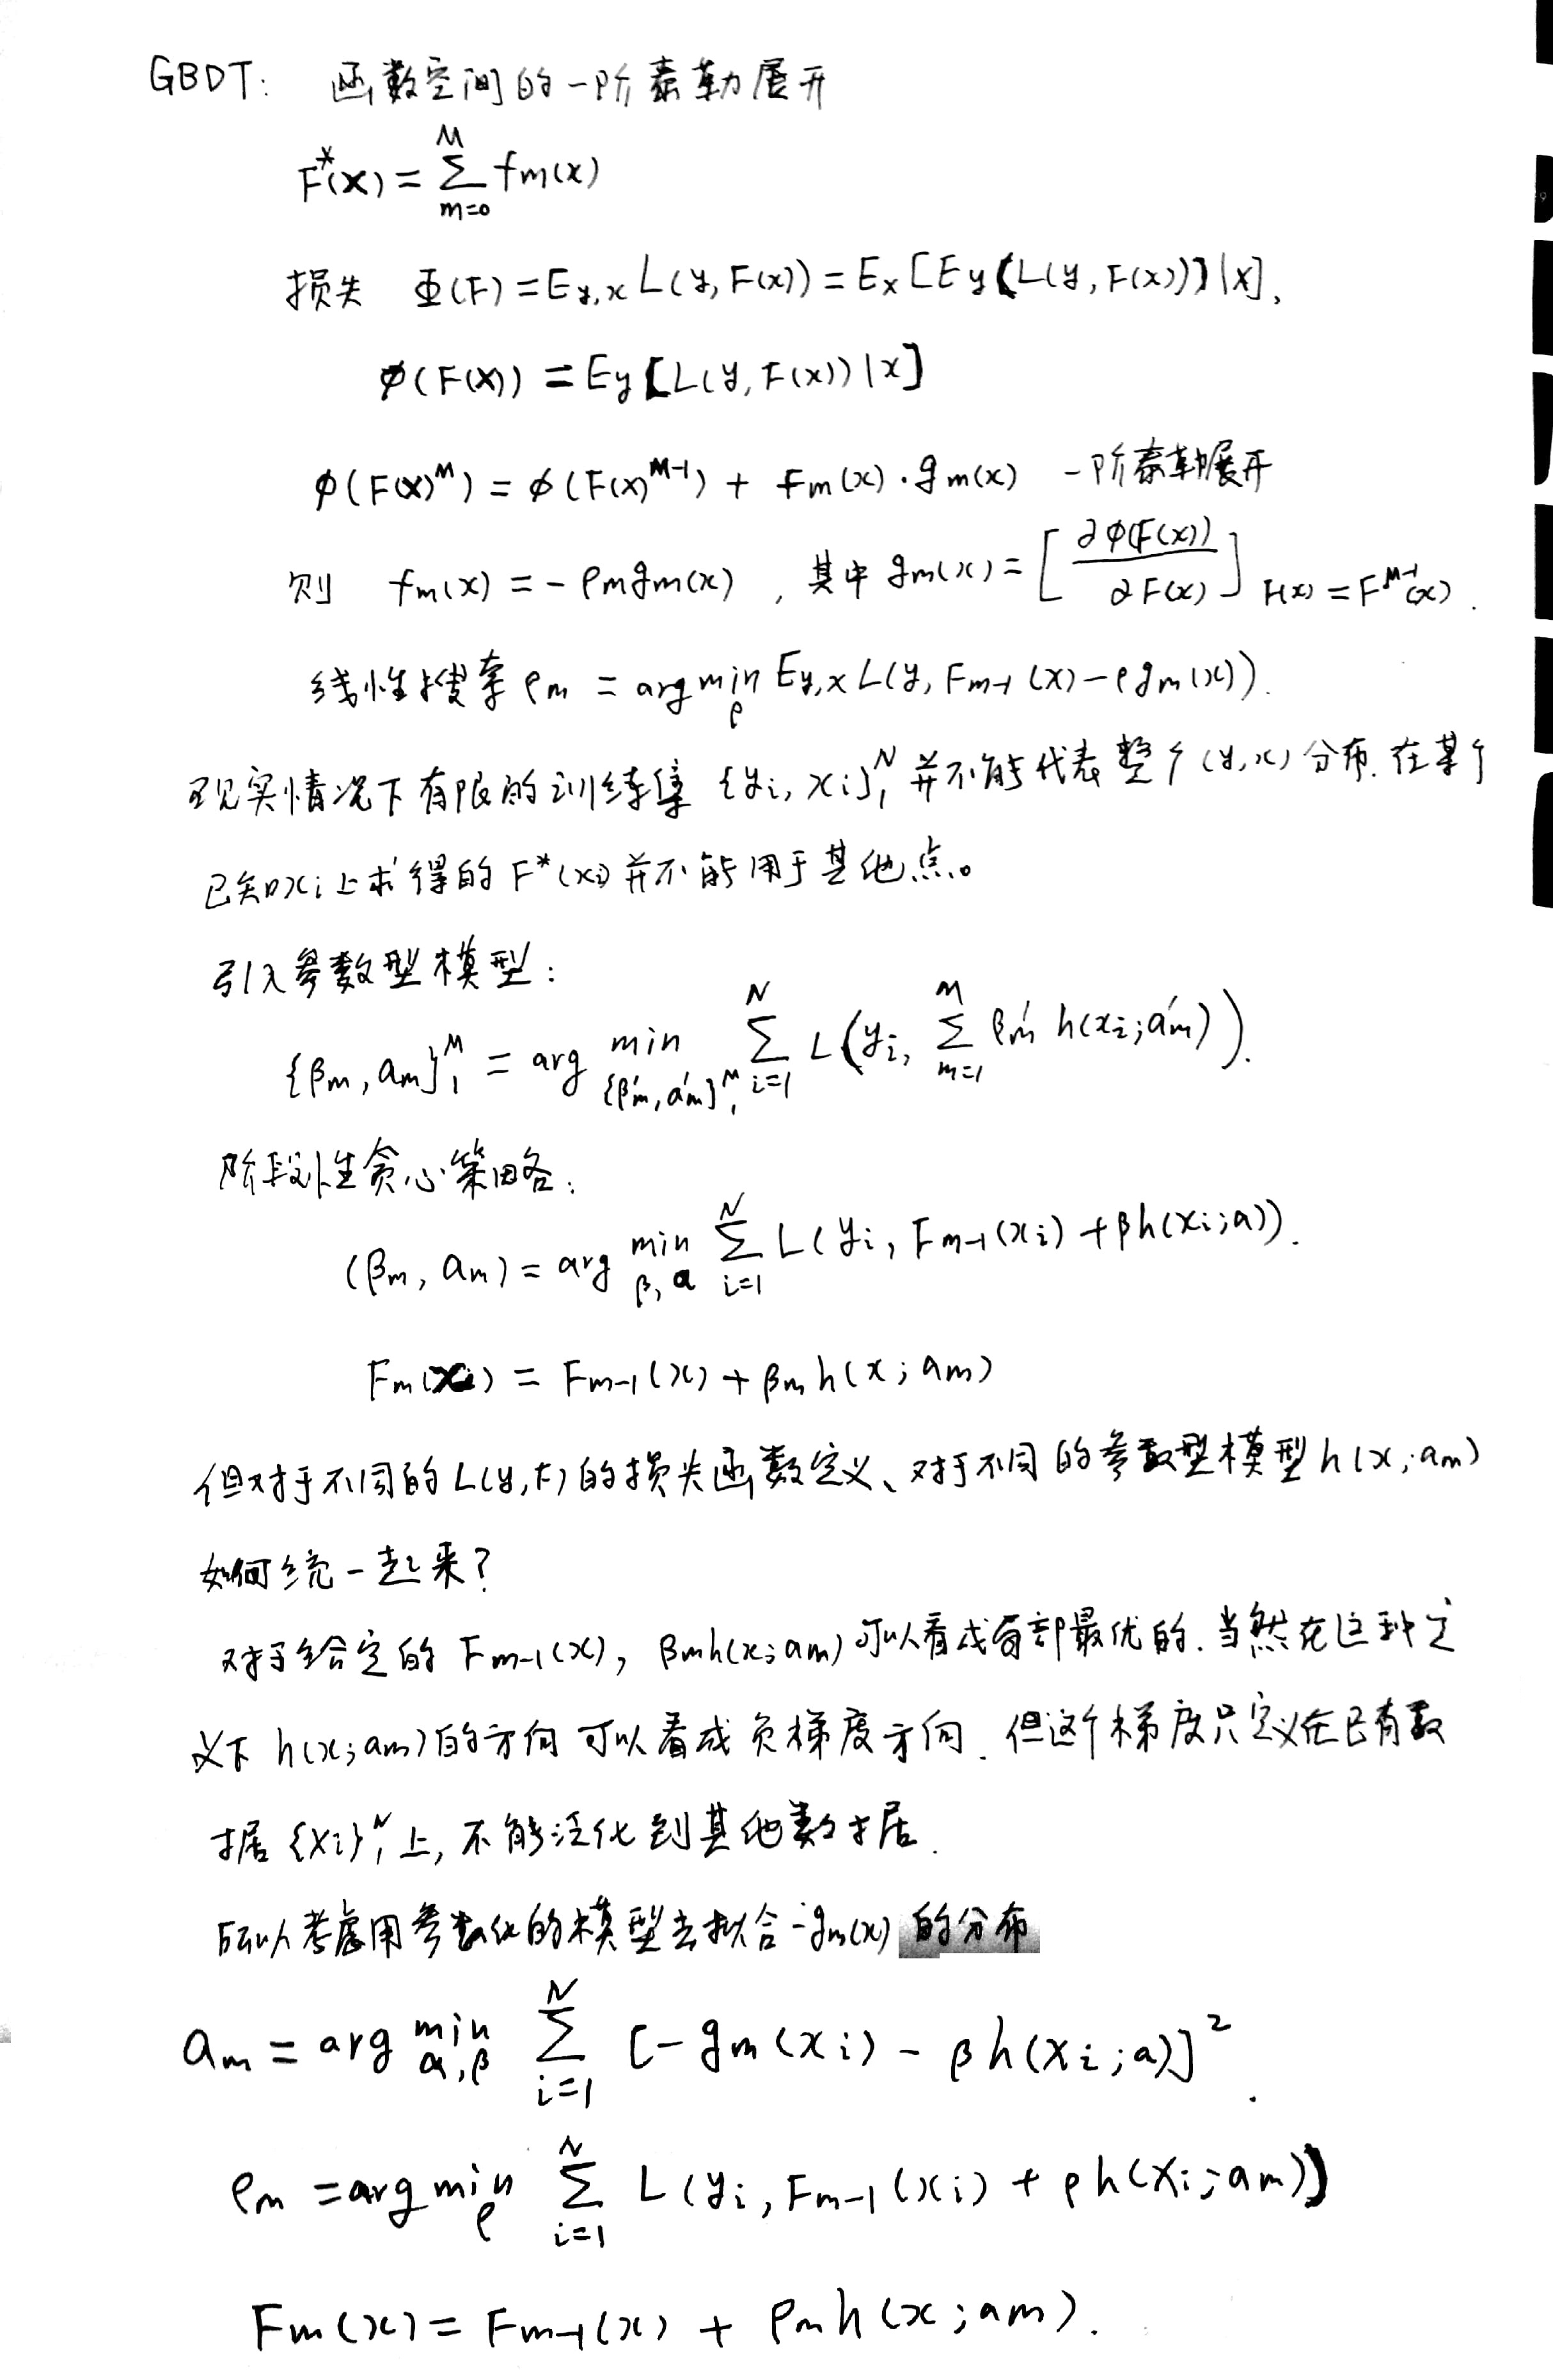 GBDT: 函数空间的一阶泰勒展开
F*(x) = Σ_{m=0}^{M} f_m(x)
损失 Φ(F) = E_{y,x} L(y, F(x)) = E_x [E_y (L(y, F(x))) | x],
ϕ(F(x)) = E_y [L(y, F(x)) | x]
ϕ(F(x)^M) = ϕ(F(x)^{M-1}) + f_m(x)·g_m(x) 一阶泰勒展开
则 f_m(x) = -ρ_m g_m(x), 其中 g_m(x) = [∂ϕ(F(x)) / ∂F(x)]_{F(x) = F^{M-1}(x)}.
线性搜索 ρ_m = arg min_ρ E_{y,x} L(y, F_{m-1}(x) - ρ g_m(x)).
现实情况下有限的训练集 {y_i, x_i}_1^N 并不能代表整个 (y,x) 分布. 在某个
已知 x_i 上求得的 F*(x_i) 并不能用于其他点。
引入参数型模型:
{β_m, a_m}_1^M = arg min_{{β'_m, a'_m}_1^M} Σ_{i=1}^{N} L(y_i, Σ_{m=1}^{M} β'_m h(x_i; a'_m)).
阶段性贪心策略:
(β_m, a_m) = arg min_{β, a} Σ_{i=1}^{N} L(y_i, F_{m-1}(x_i) + βh(x_i; a)).
F_m(x) = F_{m-1}(x) + β_m h(x; a_m)
但对于不同的 L(y,F) 的损失函数定义、对于不同的参数型模型 h(x; a_m)
如何统一起来?
对于给定的 F_{m-1}(x), β_m h(x; a_m) 可以看成局部最优的. 当然在这种定
义下 h(x; a_m) 的方向可以看成负梯度方向. 但这个梯度只定义在已有数
据 {x_i}_1^N 上, 不能泛化到其他数据.
所以考虑用参数化的模型去拟合 -g_m(x) 的分布
a_m = arg min_{α,β} Σ_{i=1}^{N} [-g_m(x_i) - βh(x_i; a)]^2.
ρ_m = arg min_ρ Σ_{i=1}^{N} L(y_i, F_{m-1}(x_i) + ρh(x_i; a_m))
F_m(x) = F_{m-1}(x) + ρ_m h(x; a_m).